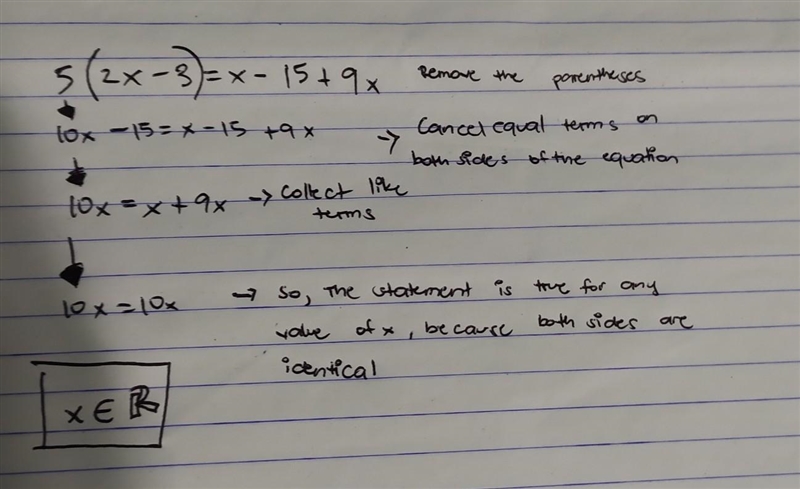 5(2x-3)=x-15+9x Remove the parentheses
10x-15=x-15+9x → Cancel equal terms on
both sides of the equation
10x=x+9x → collect like
terms
10x=10x → so, The statement is true for any
value of x, because both sides are
identical
x∈ℝ